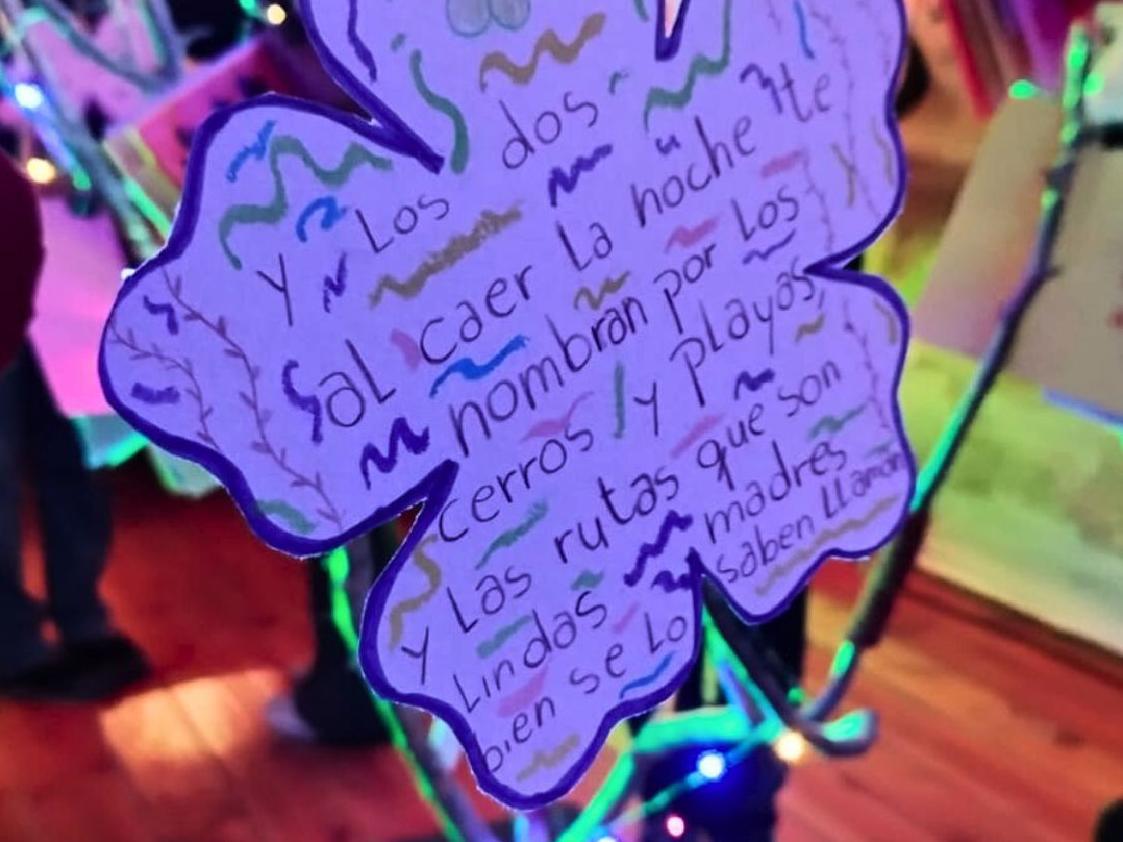 Y Los dos
Sal caer La noche te
nombran por Los
cerros y playas,
Y Las rutas que son
Lindas madres
bien se Lo saben LLaman